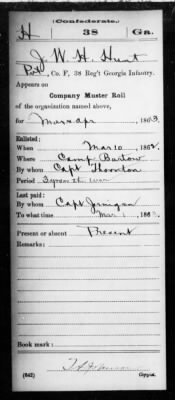 (Confederate.)
H 38 Ga.
J. W. H. Hunt
Pvt, Co. F, 38 Reg't Georgia Infantry.
Appears on
Company Muster Roll
of the organization named above,
for Mar & Apr, 1863.
Enlisted:
When Mar 10, 1862.
Where Camp Bartow
By whom Capt Thornton
Period 3 years or the war
Last paid:
By whom Capt Jernigan
To what time Mar 1, 186
Present or absent Present
Remarks:
Book mark:
(642) Copyist.